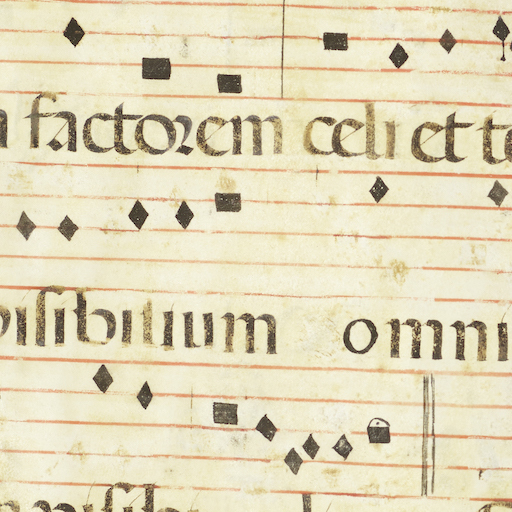 factorem celi et te
isibilium omni